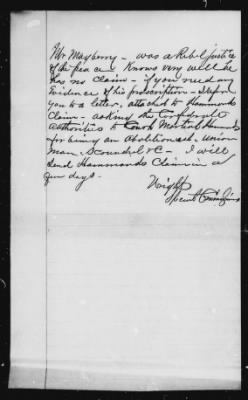 Mr Mayberry - was a Rebel justice
of the peace - Knows very well he
has no Claim - if you need any
Evidence of his proscription - I refer
you to a letter, attached to Hammonds
Claim - asking the Confederate
authorities to Court Martial Hammond
for being an Abolitionist, Union
man, Scoundrel &C - I will
send Hammonds Claim in a
few days -
Wright
Special Commissioner